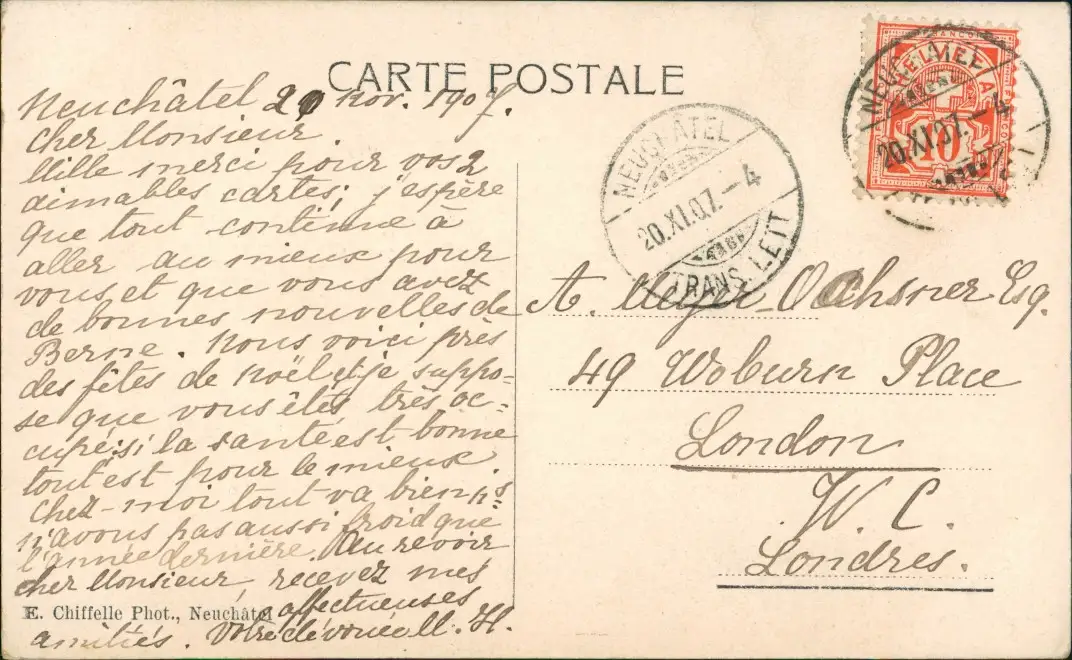 CARTE POSTALE
Neuchâtel 20 Nov. 1907.
Cher Monsieur
Mille merci pour vos 2
aimables cartes; j'espère
que tout continue à
aller au mieux pour
vous et que vous avez
de bonnes nouvelles de
Berne. Nous voici près
des fêtes de Noël et je suppo=
se que vous êtes très oc=
cupé; si la santé est bonne
tout est pour le mieux.
Chez-moi tout va bien, ns
n'avons pas aussi froid que
l'année dernière. Au revoir
cher Monsieur, recevez mes
affectueuses
amitiés. Votre dévouée M. H.
E. Chiffelle Phot., Neuchâtel
NEUCHÂTEL
20.XI.07.-4
TRANS. LETT
NEUCHATEL
20.XI.07.-4
FRANCO
10
A. Ochsner Esq.
49 Woburn Place
London
W. C.
Londres.